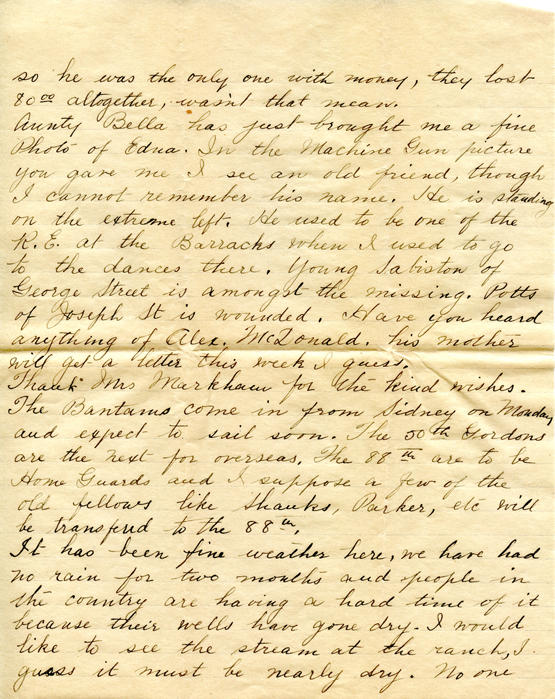 so he was the only one with money, they lost
80⁰⁰ altogether, wasn't that mean.
Aunty Bella has just brought me a fine
Photo of Edna. In the Machine Gun picture
you gave me I see an old friend, though
I cannot remember his name. He is standing
on the extreme left. He used to be one of the
R.E. at the Barracks when I used to go
to the dances there. Young Sabiston of
George Street is amongst the missing. Potts
of Joseph St is wounded. Have you heard
anything of Alex. McDonald. his mother
will get a letter this week I guess.
Thank Mrs Markham for the kind wishes.
The Bantams come in from Sidney on Monday
and expect to sail soon. The 50th Gordons
are the next for overseas. The 88th are to be
Home Guards and I suppose a few of the
old fellows like Shanks, Parker, etc will
be transferd to the 88th.
It has been fine weather here, we have had
no rain for two months and people in
the country are having a hard time of it
because their wells have gone dry. I would
like to see the stream at the ranch, I
guess it must be nearly dry. No one